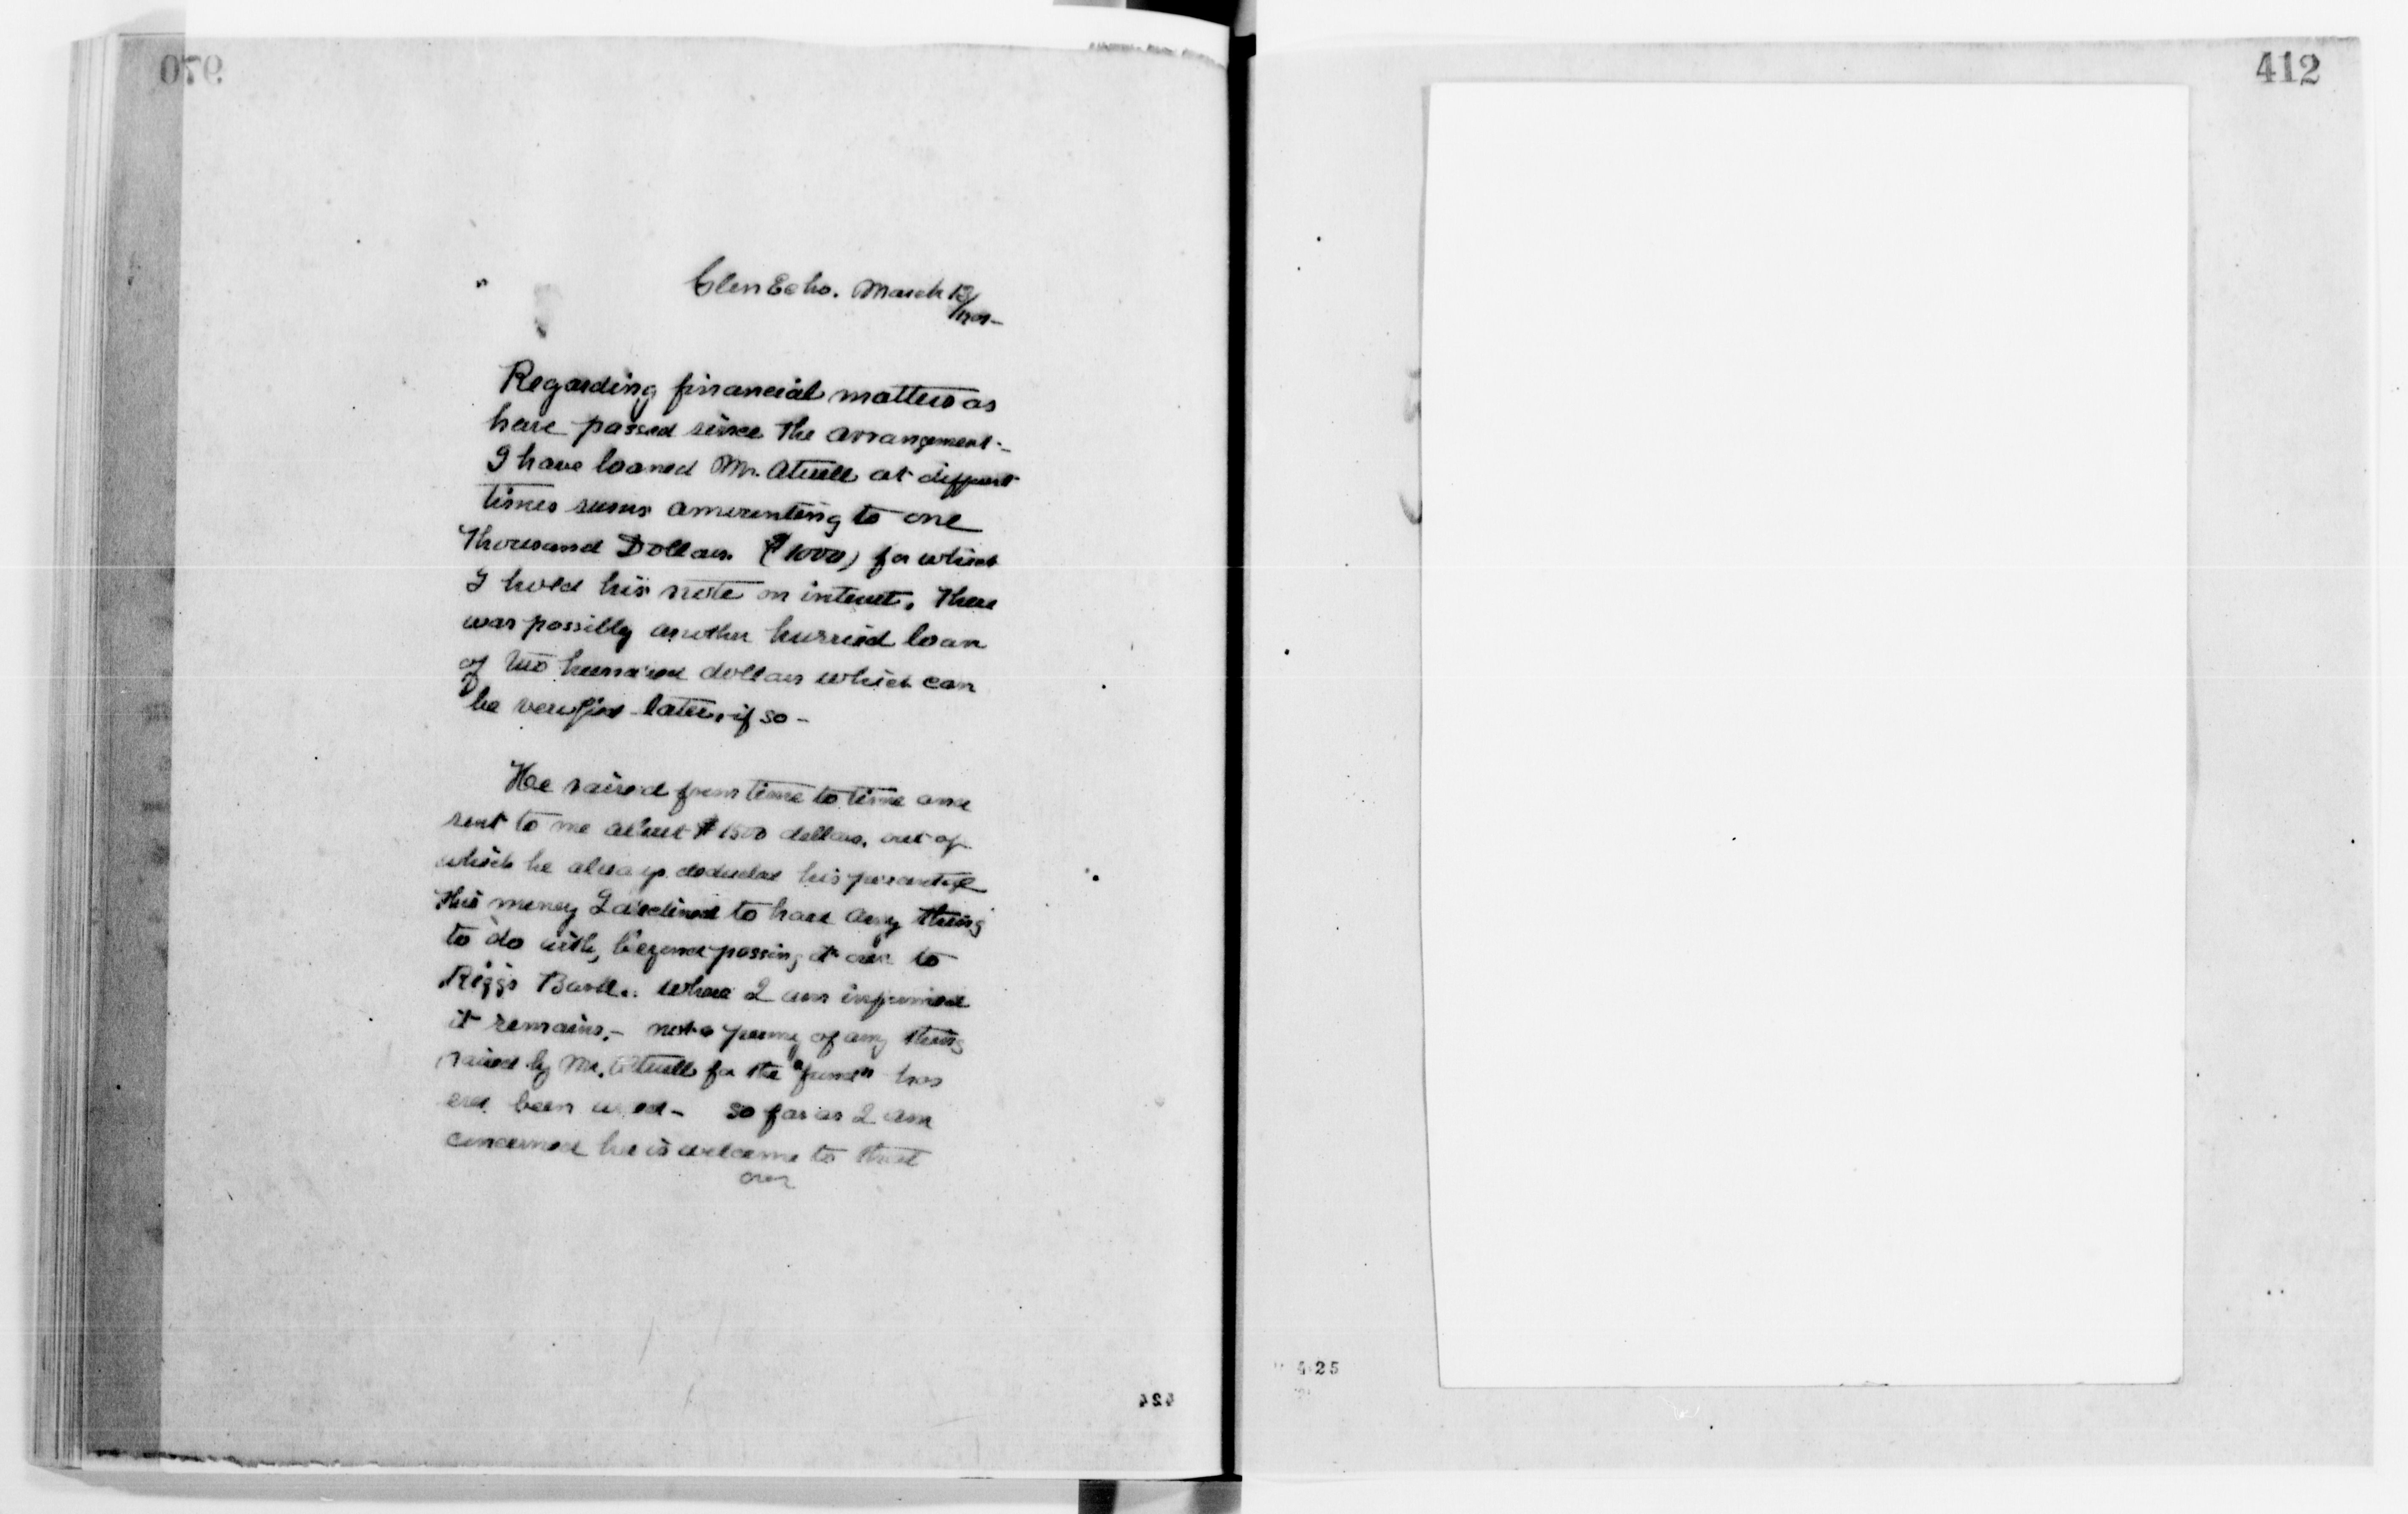 Glen Echo. March 13/
1901-
Regarding financial matters as
have passed since the arrangement -
I have loaned Mr. Atwell at different
times sums amounting to one
Thousand Dollars. ($1000) for which
I hold his note on interest. There
was possibly another hurried loan
of two hundred dollars which can
be verified later, if so -
He raised from time to time and
sent to me about $1500 dollars, out of
which he always deducted his percentage
This money I declined to have any thing
to do with, beyond passing it over to
Riggs Bank.. where I am informed
it remains. - not a penny of any thing
raised by Mr. Atwell for the "fund" has
ever been used - so far as I am
concerned he is welcome to that
over
424
412
425